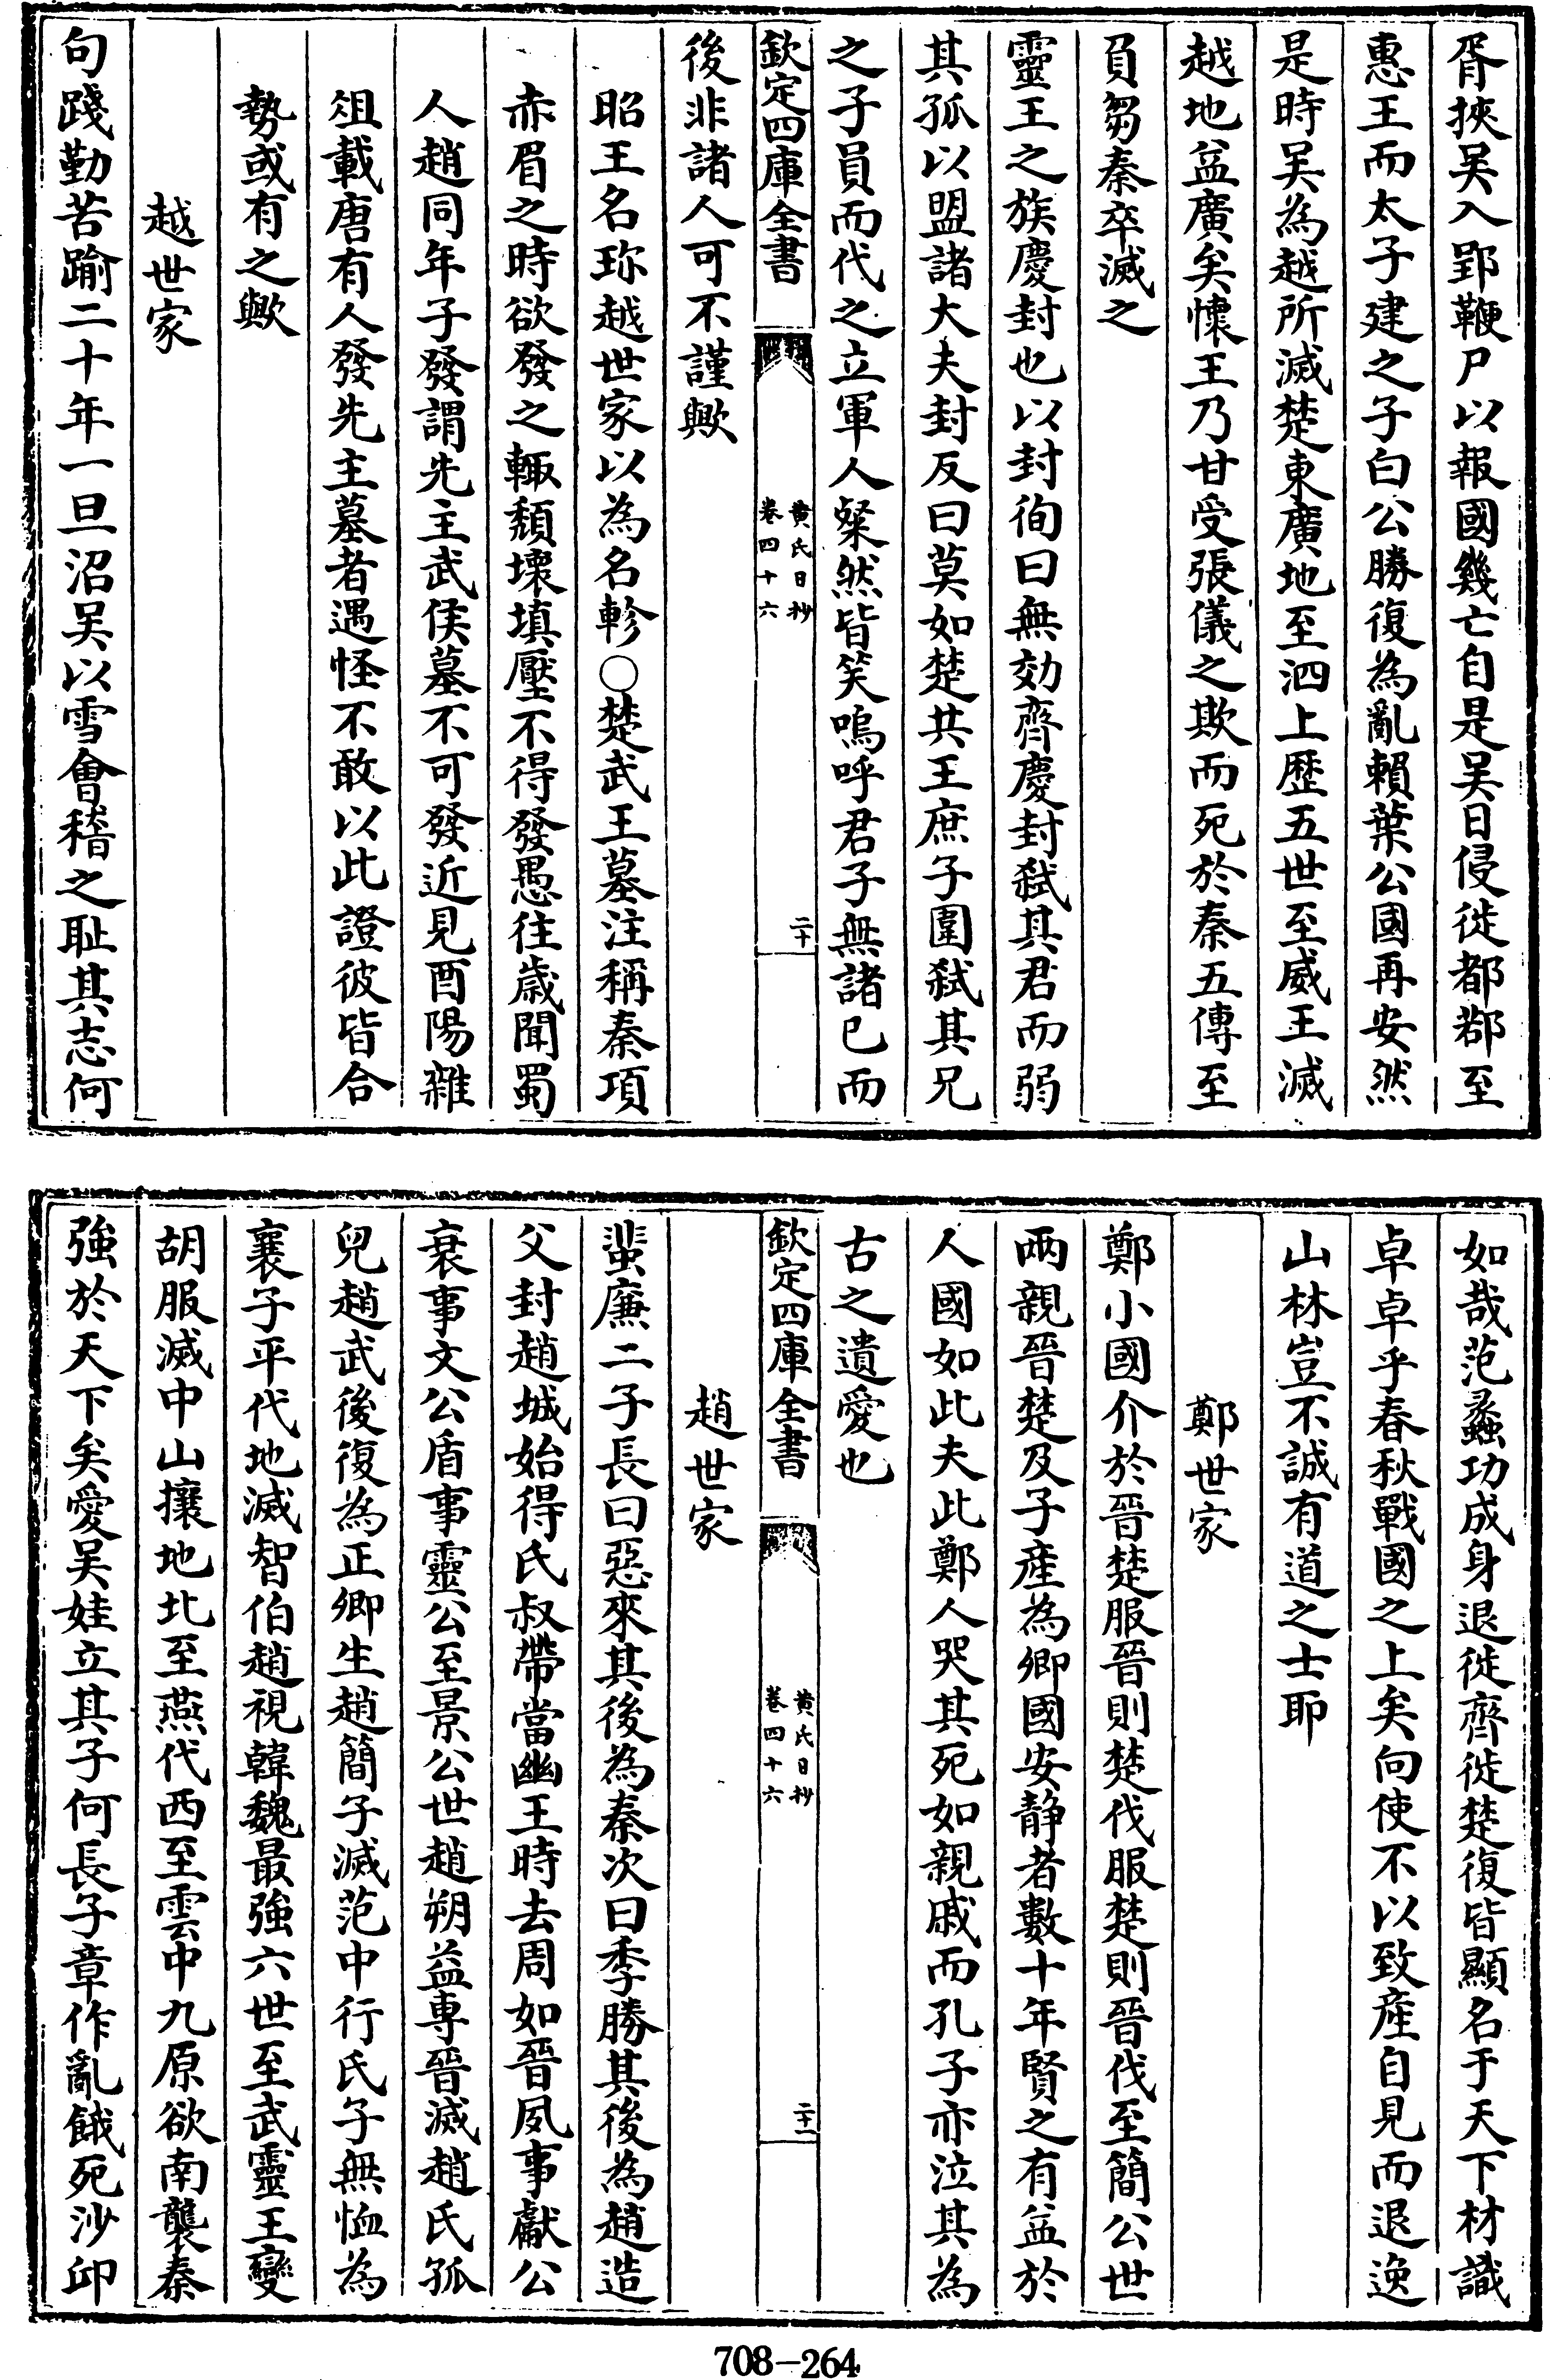 胥挾吴入郢鞭尸以報國幾亡自是吴日侵徙都鄀至
惠王而太子建之子白公勝復為亂賴葉公國再安然
是時吴為越所滅楚東廣地至泗上歴五世至威王滅
越地益廣矣懷王乃甘受張儀之欺而死於秦五傳至
負芻秦卒滅之
靈王之族慶封也以封徇曰無効齊慶封弑其君而弱
其孤以盟諸大夫封反曰莫如楚共王庶子圍弑其兄
之子員而代之立軍人粲然皆笑嗚呼君子無諸已而
欽定四庫全書
黄氏日抄
卷四十六
二十
後非諸人可不謹歟
昭王名珎越世家以為名軫○楚武王墓注稱秦項
赤眉之時欲發之輒頽壞填壓不得發愚往歳聞蜀
人趙同年子發謂先主武侯墓不可發近見酉陽雜
俎載唐有人發先主墓者遇怪不敢以此證彼皆合
勢或有之歟
越世家
句踐勤苦踰二十年一旦沼吴以雪會稽之耻其志何
如哉范蠡功成身退徙齊徙楚復皆顯名于天下材識
卓卓乎春秋戰國之上矣向使不以致産自見而退逸
山林豈不誠有道之士耶
鄭世家
鄭小國介於晉楚服晉則楚伐服楚則晉伐至簡公世
兩親晉楚及子産為卿國安静者數十年賢之有益於
人國如此夫此鄭人哭其死如親戚而孔子亦泣其為
古之遺愛也
欽定四庫全書
黄氏日抄
卷四十六
二十一
趙世家
蜚廉二子長曰惡來其後為秦次曰季勝其後為趙造
父封趙城始得氏叔帶當幽王時去周如晉夙事獻公
衰事文公盾事靈公至景公世趙朔益専晉滅趙氏孤
兒趙武後復為正卿生趙簡子滅范中行氏子無恤為
襄子平代地滅智伯趙視韓魏最強六世至武靈王變
胡服滅中山攘地北至燕代西至雲中九原欲南襲秦
強於天下矣愛吴娃立其子何長子章作亂餓死沙邱
708-264